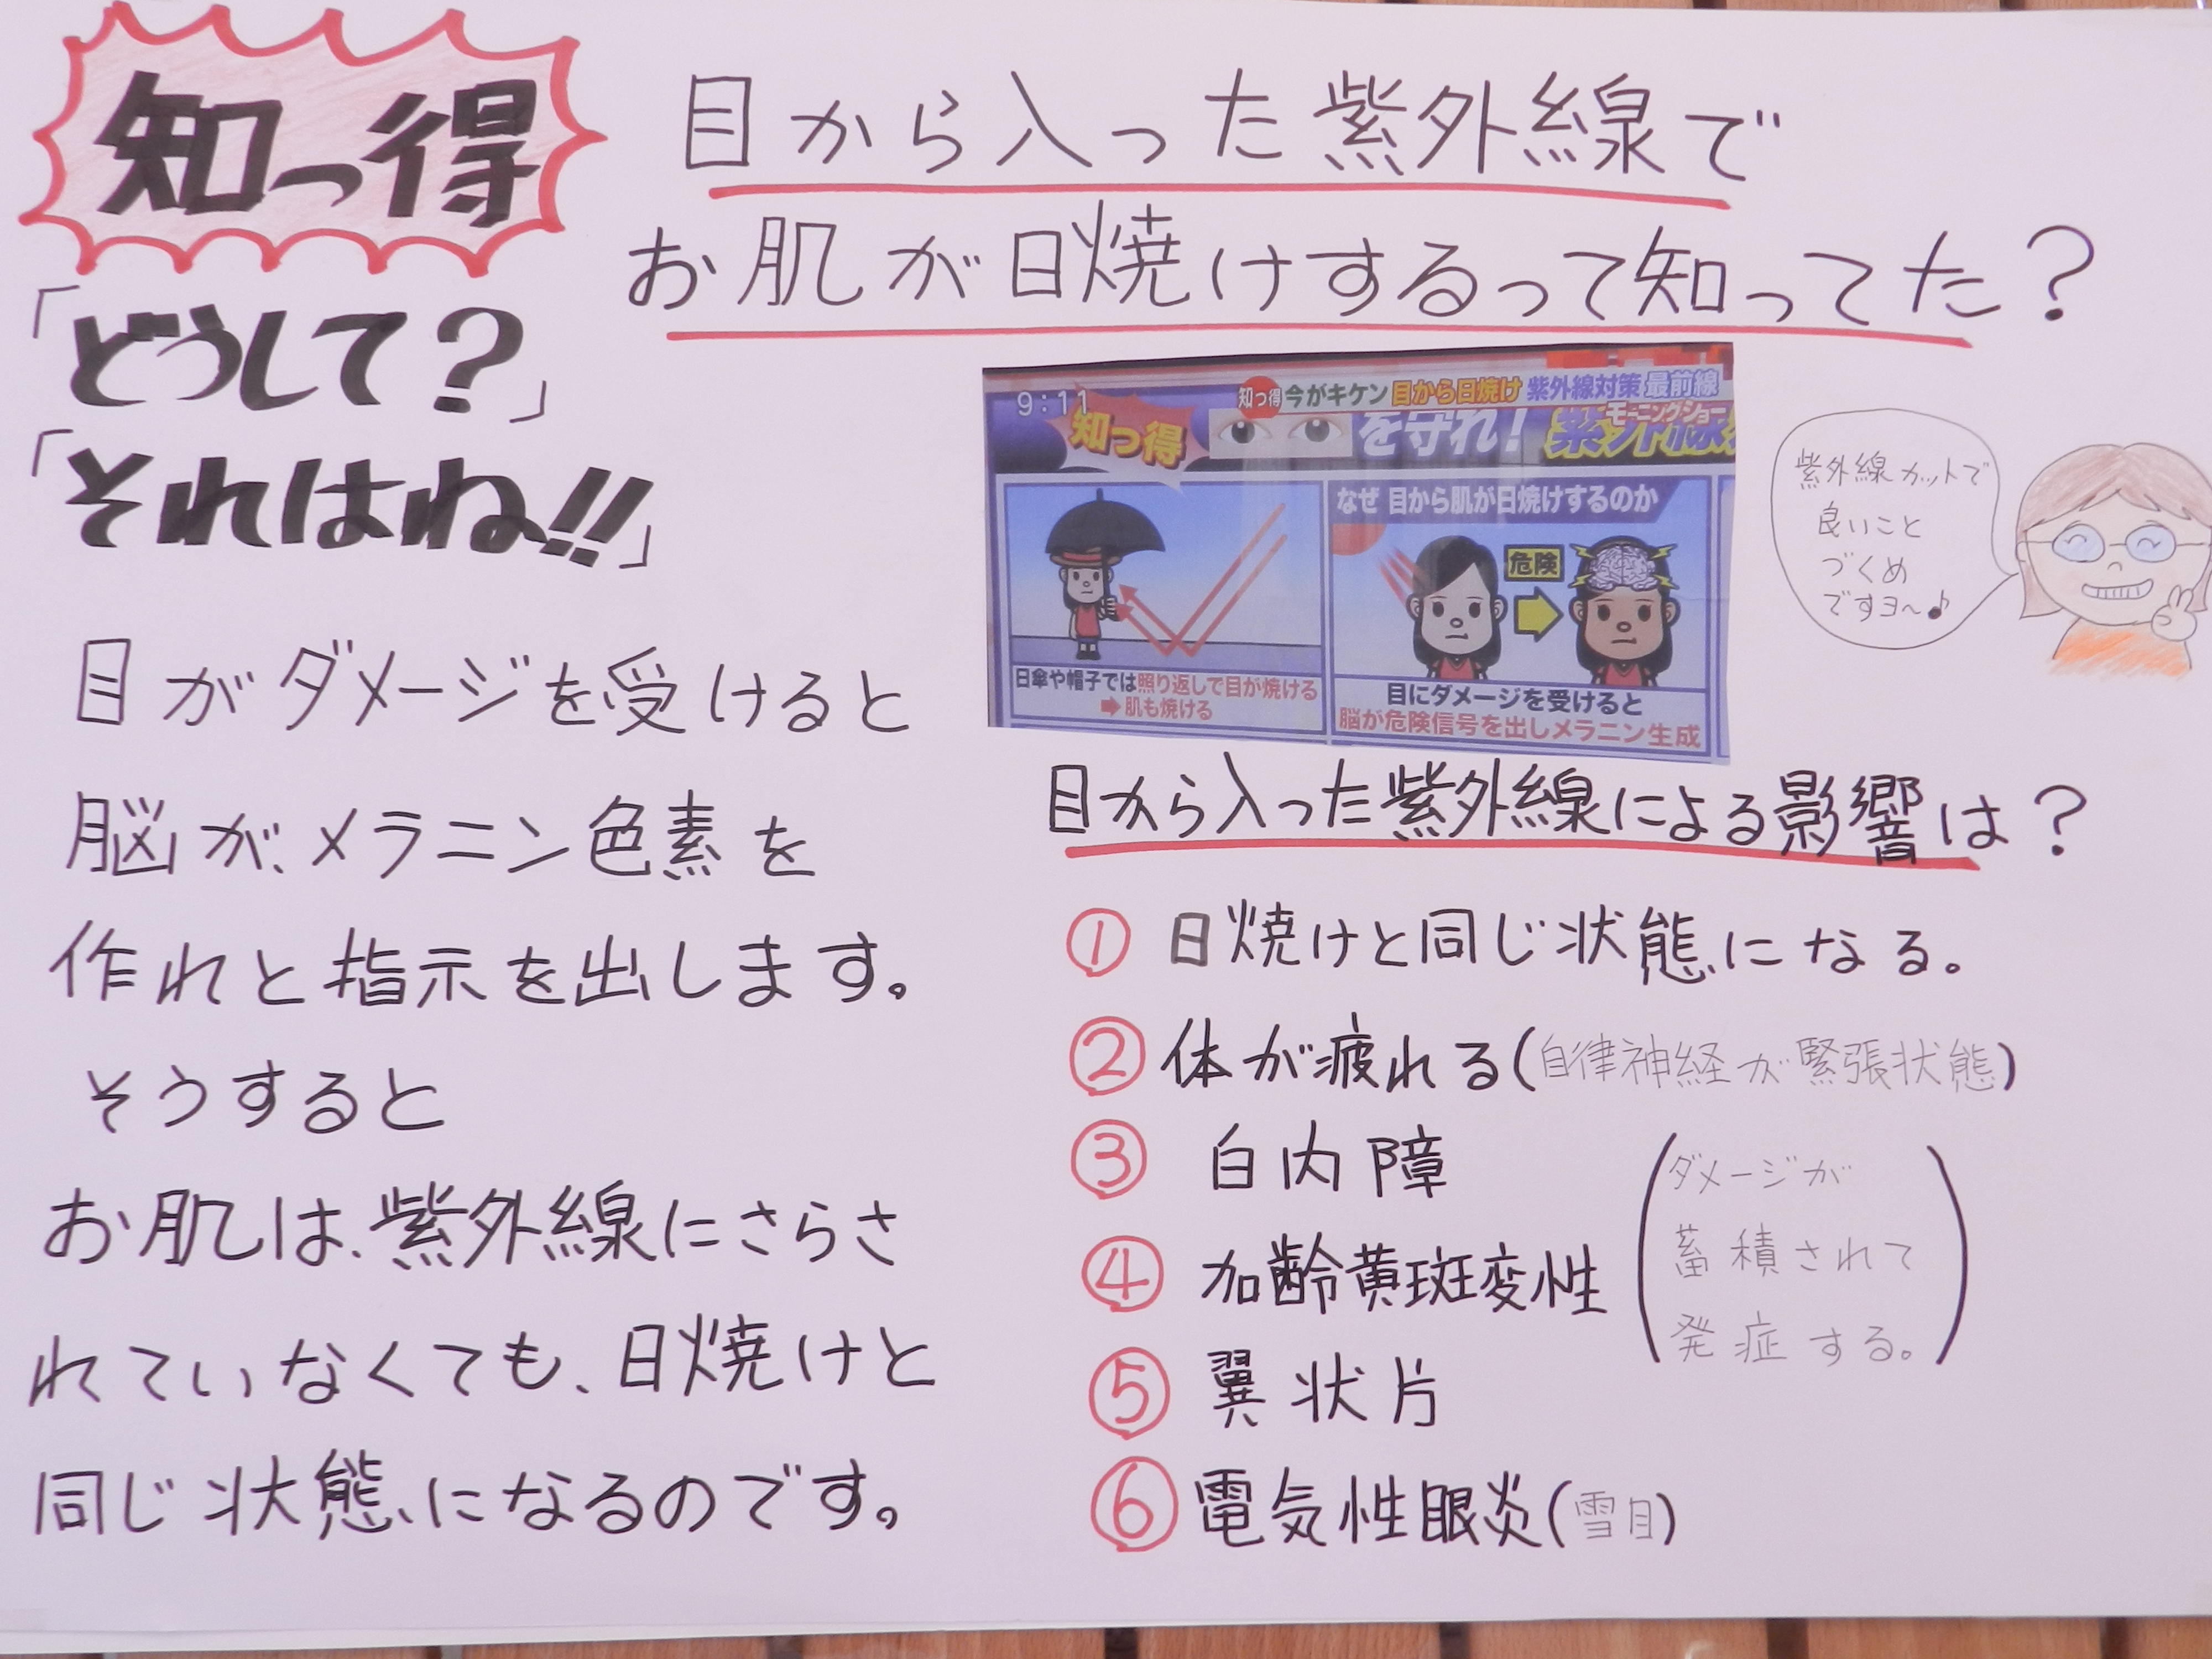 知っ得
目から入った紫外線で
お肌が日焼けするって知ってた？
「どうして？」
「それはね!!」
目がダメージを受けると
脳が、メラニン色素を
作れと指示を出します。
そうすると
お肌は、紫外線にさらさ
れていなくても、日焼けと
同じ状態になるのです。
9:11
知っ得 今がキケン 目から日焼け 紫外線対策 最前線
モーニングショー
知っ得
を守れ！紫外線
なぜ 目から肌が日焼けするのか
危険
日傘や帽子では照り返しで目が焼ける
➡肌も焼ける
目にダメージを受けると
脳が危険信号を出しメラニン生成
紫外線カットで
良いこと
づくめ
ですヨ〜♪
目から入った紫外線による影響は？
① 日焼けと同じ状態になる。
② 体が疲れる(自律神経が緊張状態)
③ 白内障
④ 加齢黄斑変性
⑤ 翼状片
(ダメージが
蓄積されて
発症する。)
⑥ 電気性眼炎(雪目)